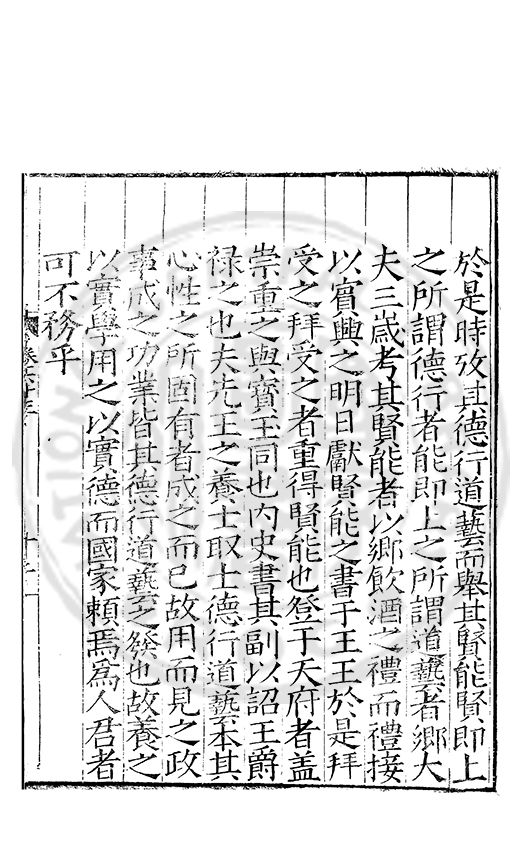 於是時攷其德行道藝而舉其賢能賢即上
之所謂德行者能即上之所謂道藝者鄉大
夫三歲考其賢能者以鄉飲酒之禮而禮接
以賓興之明日獻賢能之書于王王於是拜
受之拜受之者重得賢能也登于天府者盖
崇重之與寶王同也內史書其副以詔王爵
祿之也夫先王之養士取士德行道藝本其
心性之所固有者成之而已故用而見之政
事成之功業皆其德行道藝之發也故養之
以實學用之以實德而國家賴焉爲人君者
可不務乎